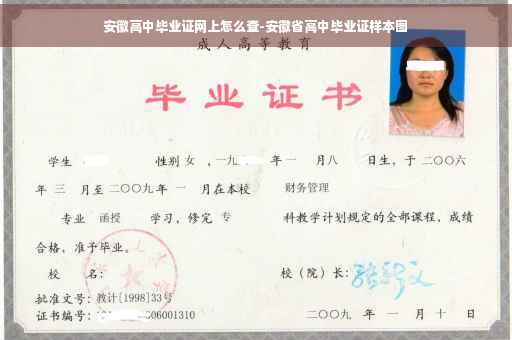 安徽高中毕业证网上怎么查-安徽省高中毕业证样本图
成人高等教育
毕业证书
学生 性别 女 ，一九 年 一 月八 日生，于 二〇〇六
年 三 月至 二〇〇九 年 一 月在本校 财务管理
专业 函授 学习，修完 专 科教学计划规定的全部课程，成绩
合格，准予毕业。
校 名： 校（院）长：
批准文号：教计[1998]33号
证书编号： 06001310 二〇〇九 年 一 月 十 日